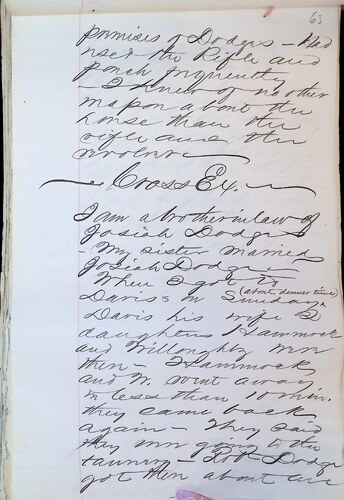 63
premises of Dodgers – Had
used the Rifle and
porch frequently
– I knew of no other
weapon about the
house than the
rifle and the
revolver
Cross Ex.
I am a brotherinlaw of
Josiah Dodge
– My sister married
Josiah Dodge –
When I got to
(about dinner time)
Davis on Sunday
Davis his wife & 2
daughters Hammock
and Willoughby were
there – Hammock
and W. went away
in less than 10 min.
they came back
again – They said
they were going to the
tannery – Dodge
got there about